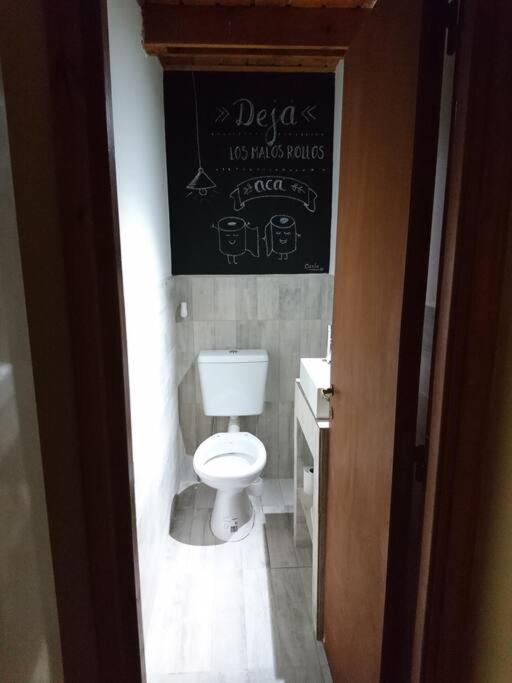 Deja
LOS MALOS ROLLOS
aca